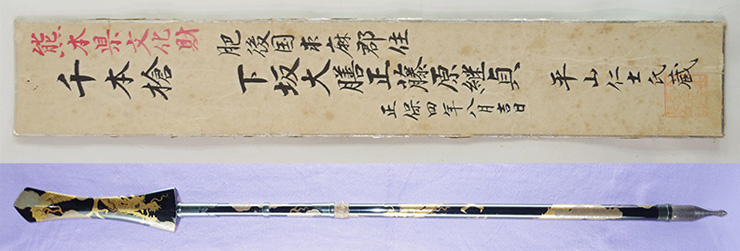 熊本県文化財
千本槍
肥後国球麻郡住
下坂大膳正藤原継貞
正保四年八月吉日
平山仁士氏蔵